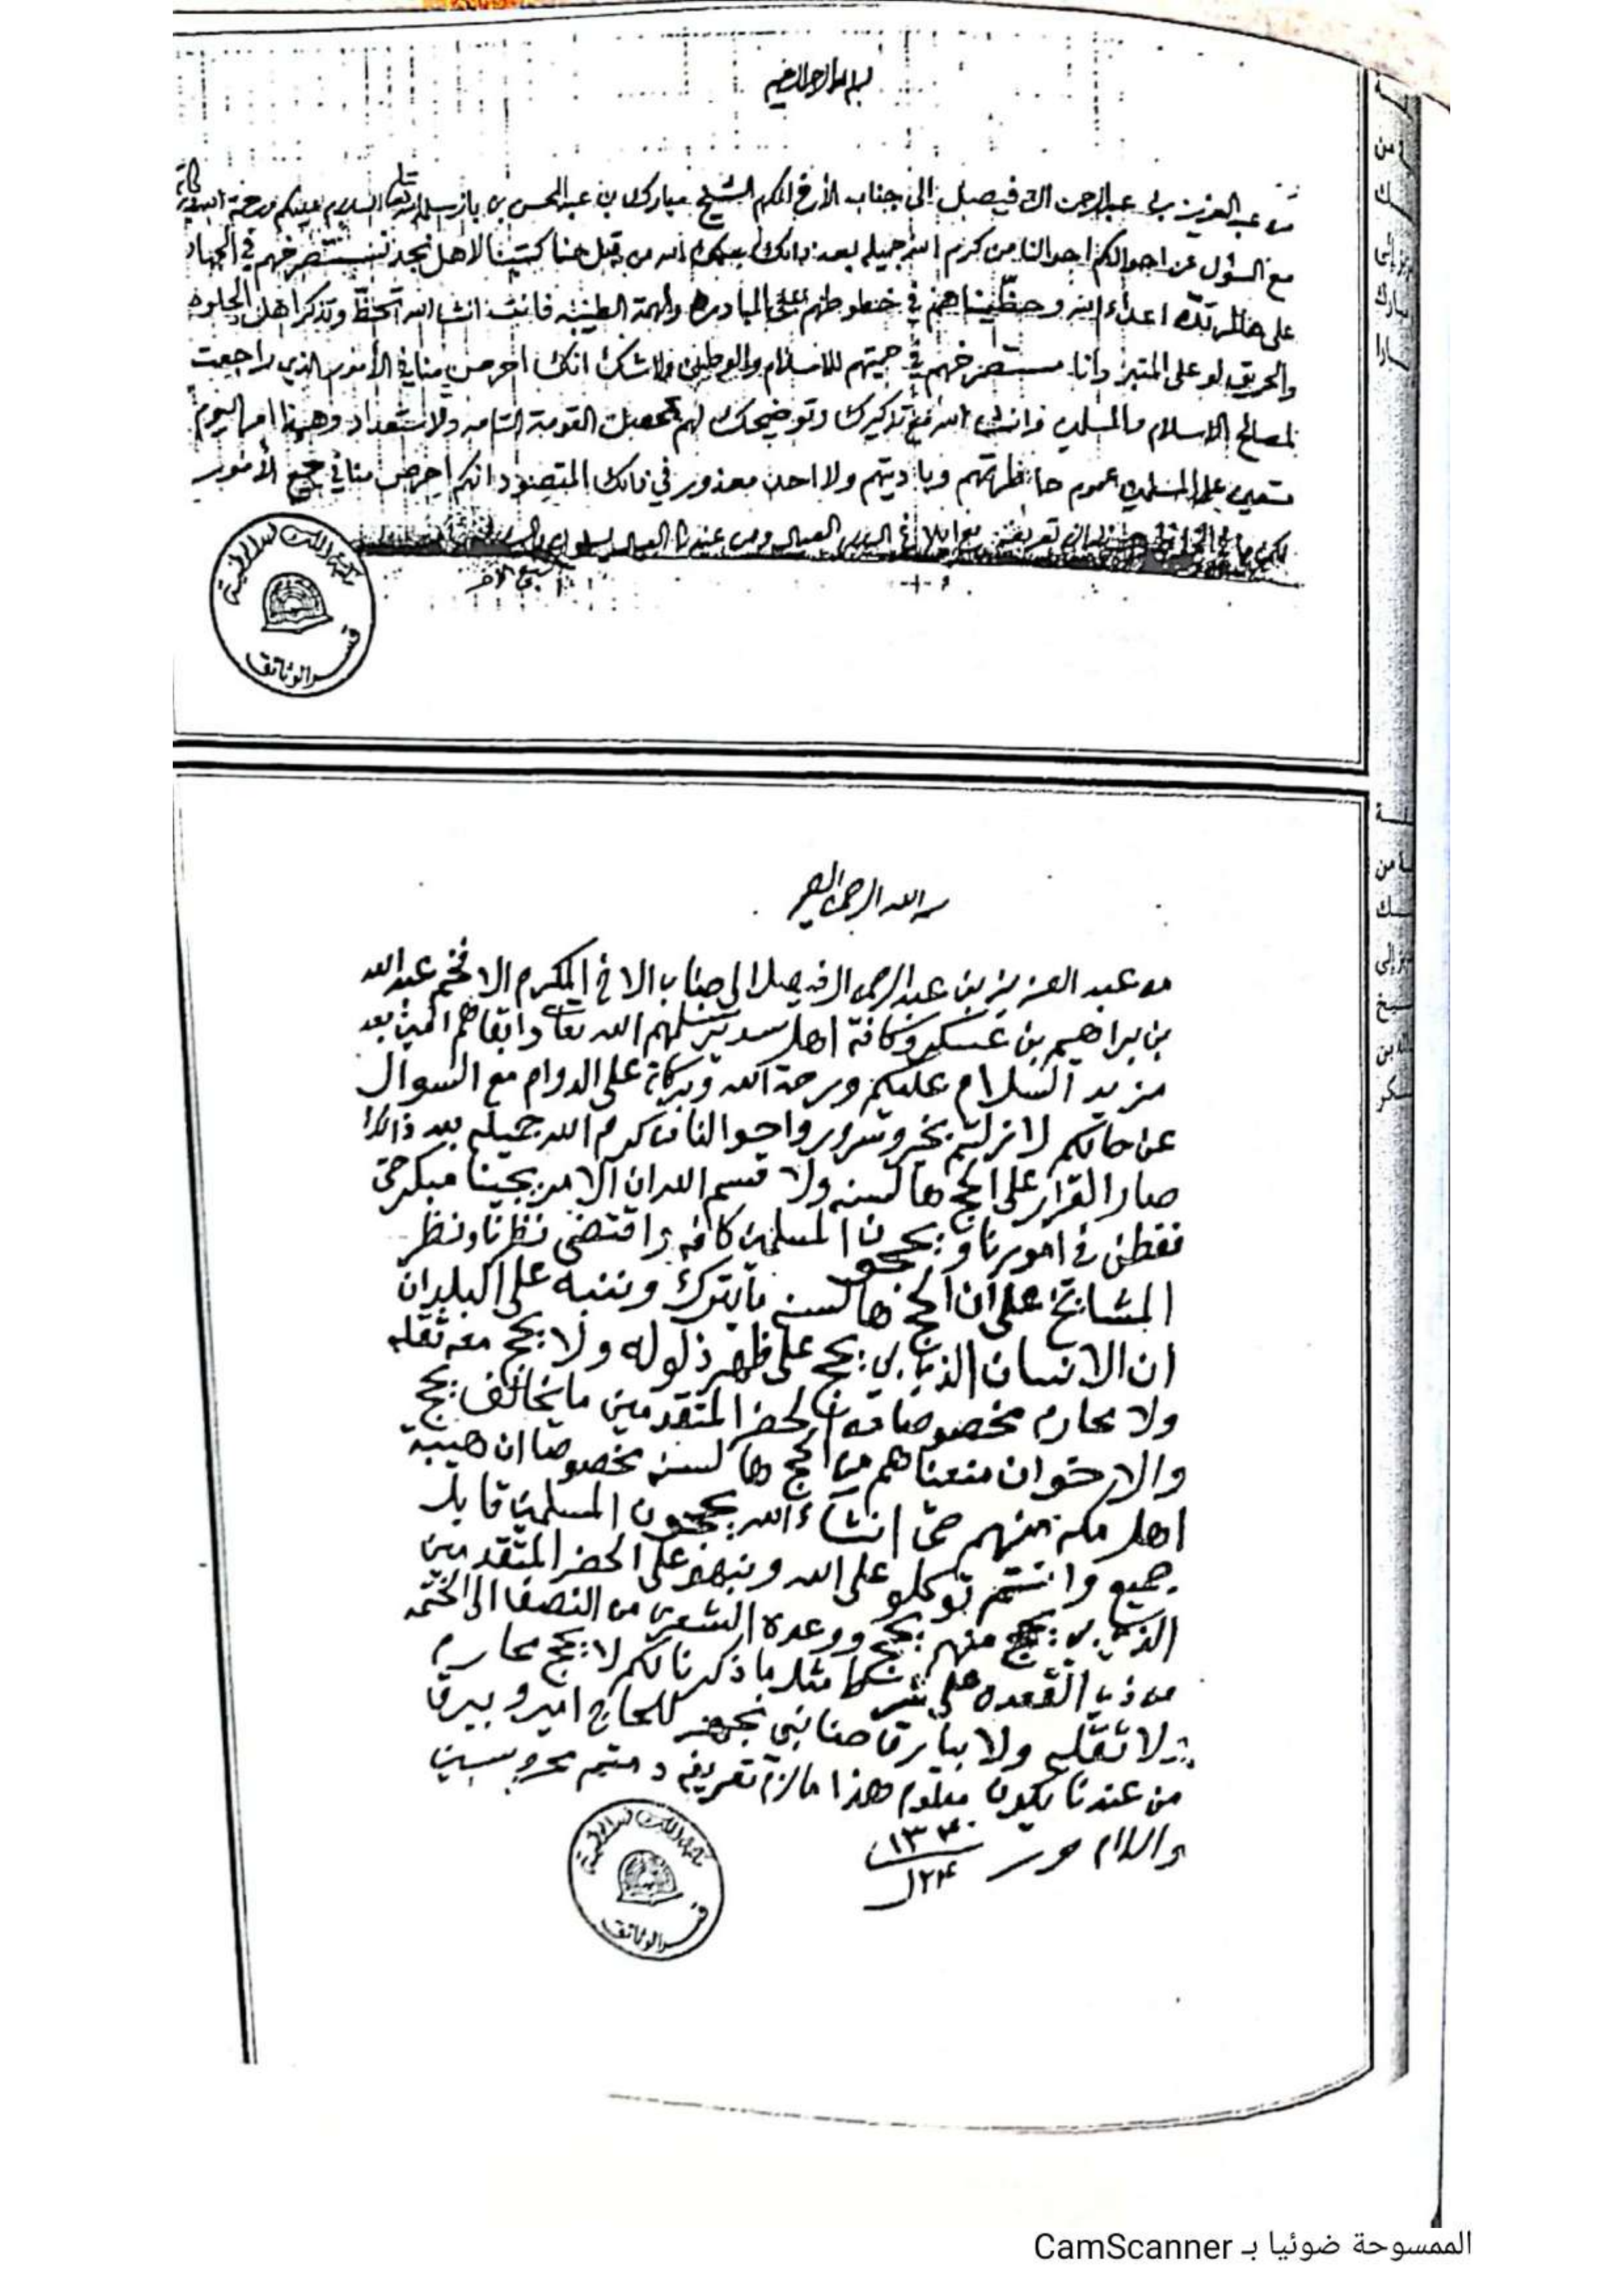 من عبد العزيز بن عبد الرحمن ال فيصل الى جناب الأخ المكرم الشيخ مبارك بن عبد المحسن بن باز سلمه الله تعالى السلام عليكم ورحمة الله وبركاته
مع السؤل عن احوالكم احوالنا من كرم الله جميله بعد ذالك من قبل حنا كتبنا لاهل نجد نستصرخهم في الجهاد
على هالمرتده اعداء الله وحظيناهم في خطوطهم على المبادره والهمة الطيبه فانت انشا الله تحظ وتذكر اهل الحلوه
والحريق لو على المنبر وانا مستصرخهم في حميتهم للاسلام والوطن ولا شك انك احرص منا في الأمور الذي راجعت
لمصالح الاسلام والمسلمين وانشا الله مع تذكيرك وتوضيحك لهم تحصل القومة التامه ولاستعداد وهذا امر اليوم
متعين على المسلمين عموم حاظرتهم وباديتهم ولا احد معذور في ذالك المقصود انكم احرص منا في جميع الأمور
تعريفه مع ابلاغ السلام العيال ومن عندنا العيال يسلمون والسلام
قسم الوثائق
الله الرحمن الرحيم
من عبد العزيز بن عبد الرحمن ال فيصل الى جناب الاخ المكرم الافخم عبد الله
بن براهيم بن عسكر وكافة اهل سدير سلمهم الله تعالى وابقاهم امين بعد
مزيد السلام عليكم ورحمة الله وبركاته على الدوام مع السوال
عن حالكم لا زلتم بخير وسرور واحوالنا من كرم الله جميله بعد ذالك
صار القرار على الحج هالسنه ولا قسم الله ان الامر يجينا مبكر حتى
نفطن في امورنا ويحجون المسلمين كافه واقتضى نظرنا ونظر
المشايخ على ان الحج هالسنه ما يترك وننبه على البلدان
ان الانسان الذي يبي يحج على ظهر ذلوله ولا يحج معه ثقله
ولا محارم مخصوصا الحضر المتقدمين ما يخالف يحج
والاخوان منعناهم من الحج هالسنه مخصوصا ان هيبة
اهل مكه منهم حتى انشاء الله يحجون المسلمين قابل
جميع وانتم توكلو على الله ونبهو على الحضر المتقدمين
الذي يبي يحج منهم يحج ووعده الشعرى من النصف الى الختمه
من ذي القعده على شر مثل ما ذكرنا لكم لا يحج محارم
ولا ثقله ولا بيارق حنا نبي نجهز للحاج امير وبيرق
من عندنا يكون معلوم هذا ما لزم تعريفه ودمتم محروسين
والسلام حرر ١٣٤٠
٢٤ ل
قسم الوثائق
الممسوحة ضوئيا بـ CamScanner